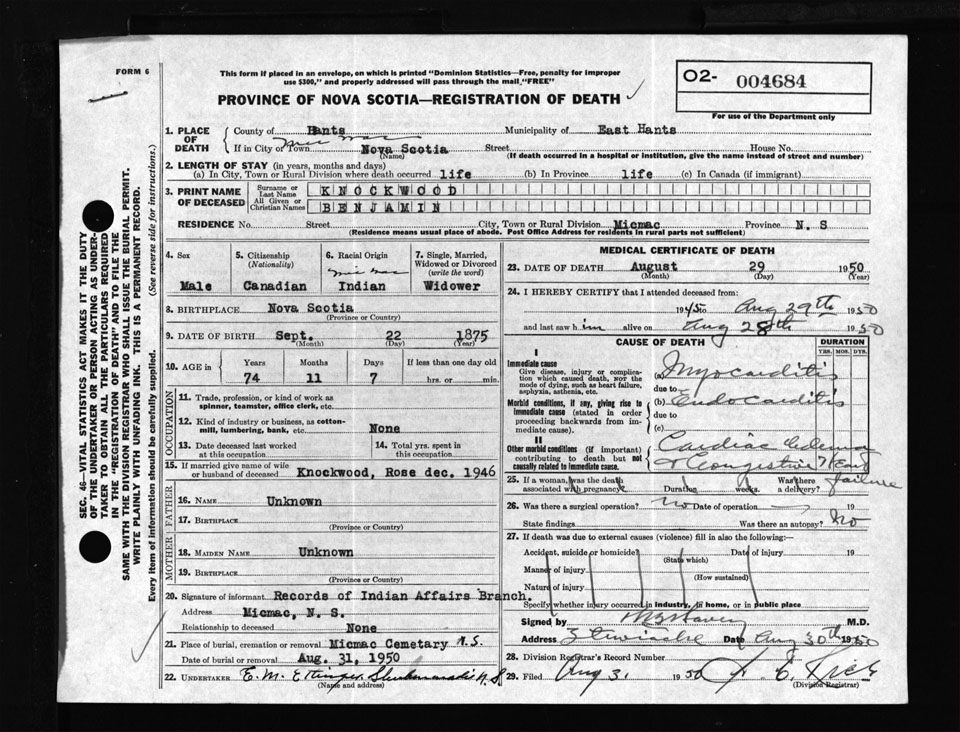 FORM 6
This form if placed in an envelope, on which is printed "Dominion Statistics—Free, penalty for improper
use $300," and properly addressed will pass through the mail "FREE"
PROVINCE OF NOVA SCOTIA—REGISTRATION OF DEATH
O2- 004684
For use of the Department only
SEC. 46—VITAL STATISTICS ACT MAKES IT THE DUTY
OF THE UNDERTAKER OR PERSON ACTING AS UNDER-
TAKER TO OBTAIN ALL THE PARTICULARS REQUIRED
IN THE "REGISTRATION OF DEATH" AND TO FILE THE
SAME WITH THE DIVISION REGISTRAR WHO SHALL ISSUE THE BURIAL PERMIT.
WRITE PLAINLY WITH UNFADING INK. THIS IS A PERMANENT RECORD.
Every item of information should be carefully supplied. (See reverse side for instructions.)
1. PLACE OF DEATH County of Hants Municipality of East Hants
If in City or Town Mic Mac Nova Scotia Street House No.
(Name) (If death occurred in a hospital or institution, give the name instead of street and number)
2. LENGTH OF STAY (in years, months and days)
(a) In City, Town or Rural Division where death occurred life (b) In Province life (c) In Canada (if immigrant)
3. PRINT NAME OF DECEASED Surname or Last Name KNOCKWOOD
All Given or Christian Names BENJAMIN
RESIDENCE No. Street City, Town or Rural Division Micmac Province N. S
(Residence means usual place of abode. Post Office Address for residents in rural parts not sufficient)
4. Sex Male
5. Citizenship (Nationality) Canadian
6. Racial Origin Mic Mac Indian
7. Single, Married, Widowed or Divorced (write the word) Widower
8. BIRTHPLACE Nova Scotia
(Province or Country)
9. DATE OF BIRTH Sept. 22 1875
(Month) (Day) (Year)
10. AGE in Years 74 Months 11 Days 7 If less than one day old hrs. or min.
OCCUPATION
11. Trade, profession, or kind of work as
spinner, teamster, office clerk, etc.
12. Kind of industry or business, as cotton-
mill, lumbering, bank, etc. None
13. Date deceased last worked at this occupation 14. Total yrs. spent in this occupation
15. If married give name of wife or husband of deceased Knockwood, Rose dec. 1946
FATHER
16. NAME Unknown
17. BIRTHPLACE
(Province or Country)
MOTHER
18. MAIDEN NAME Unknown
19. BIRTHPLACE
(Province or Country)
20. Signature of informant Records of Indian Affairs Branch.
Address Micmac, N. S.
Relationship to deceased None
21. Place of burial, cremation or removal Micmac Cemetary N.S.
Date of burial or removal Aug. 31, 1950
22. UNDERTAKER E. M. Ettinger Shubenacadie N.S
(Name and address)
MEDICAL CERTIFICATE OF DEATH
23. DATE OF DEATH August 29 1950
(Month) (Day) (Year)
24. I HEREBY CERTIFY that I attended deceased from:
1945 to Aug 29th 1950
and last saw him alive on Aug 28th 1950
CAUSE OF DEATH DURATION
YRS. MOS. DYS.
I
Immediate cause
Give disease, injury or complica-
tion which caused death, NOT the
mode of dying, such as heart failure,
asphyxia, asthenia, etc.
(a) Myocarditis
due to
Morbid conditions, if any, giving rise to
immediate cause (stated in order
proceeding backwards from im-
mediate cause).
(b) Endocarditis
due to
(c)
II
Other morbid conditions (if important)
contributing to death but not
causally related to immediate cause.
Cardiac Edema
& Congestive Heart failure
25. If a woman, was the death associated with pregnancy? Duration weeks. Was there a delivery?
26. Was there a surgical operation? no Date of operation 19
State findings Was there an autopsy? no
27. If death was due to external causes (violence) fill in also the following:—
Accident, suicide or homicide? Date of injury 19
(State which)
Manner of injury
(How sustained)
Nature of injury
Specify whether injury occurred in industry, in home, or in public place
Signed by M.D.
Address Date Aug 30th 1950
28. Division Registrar's Record Number
29. Filed Aug 31 1950
(Division Registrar)